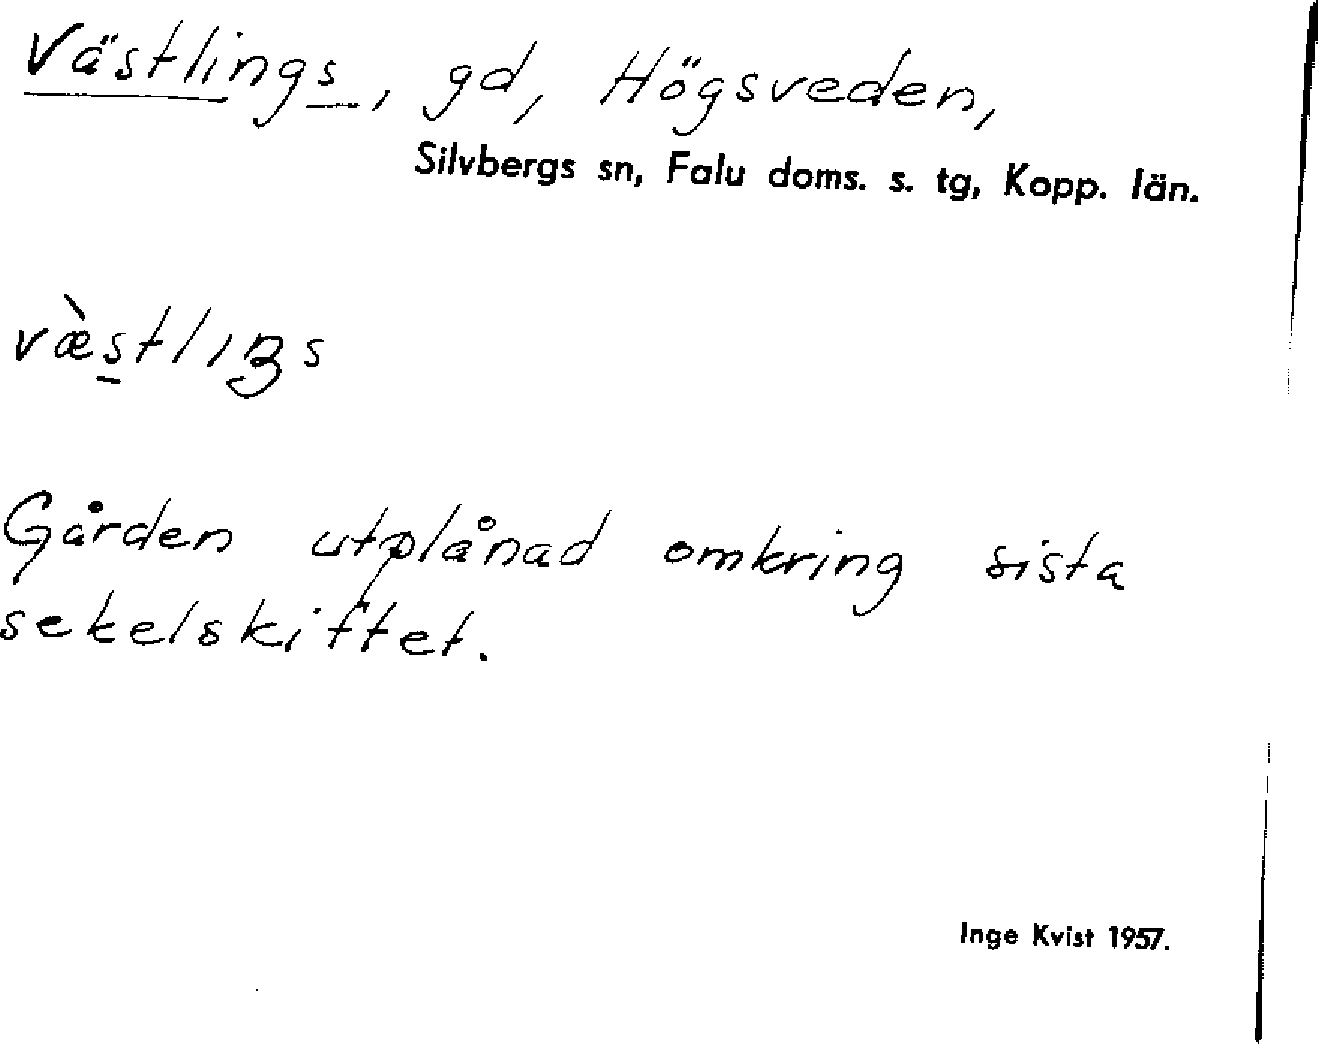 Västlings, gd, Högsveden,
Silvbergs sn, Falu doms. s. tg, Kopp. län.
væ̀s̱tlıŋs
Gården utplånad omkring sista
sekelskiftet.
Inge Kvist 1957.